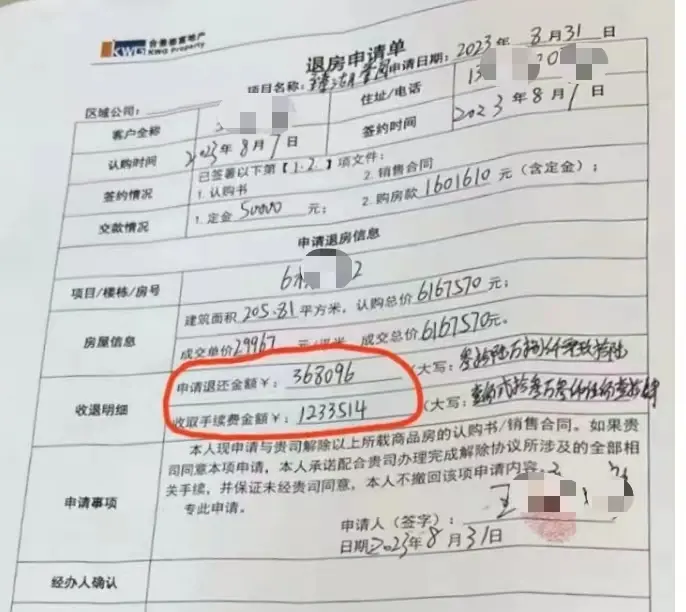 合景泰富地产
KWG Property
退房申请单
项目名称：臻湖誉园 申请日期：2023年8月31日
区域公司：
客户全称 住址/电话 13 20
认购时间 2023年8月7日 签约时间 2023年8月7日
签约情况 已签署以下第【1.2.】项文件：
1.认购书 2.销售合同
交款情况 1.定金50000元； 2.购房款1601610元（含定金）；
申请退房信息
项目/楼栋/房号 6 2
房屋信息 建筑面积205.81平方米，认购总价6167570元；
成交单价29967元/平米，成交总价6167570元。
收退明细 申请退还金额￥：368096（大写：
收取手续费金额￥：1233514（大写：
申请事项 本人现申请与贵司解除以上所载商品房的认购书/销售合同。如果贵
司同意本项申请，本人承诺配合贵司办理完成解除协议所涉及的全部相
关手续，并保证未经贵司同意，本人不撤回该项申请内容。
专此申请。
申请人（签字）：
日期2023年8月31日
经办人确认